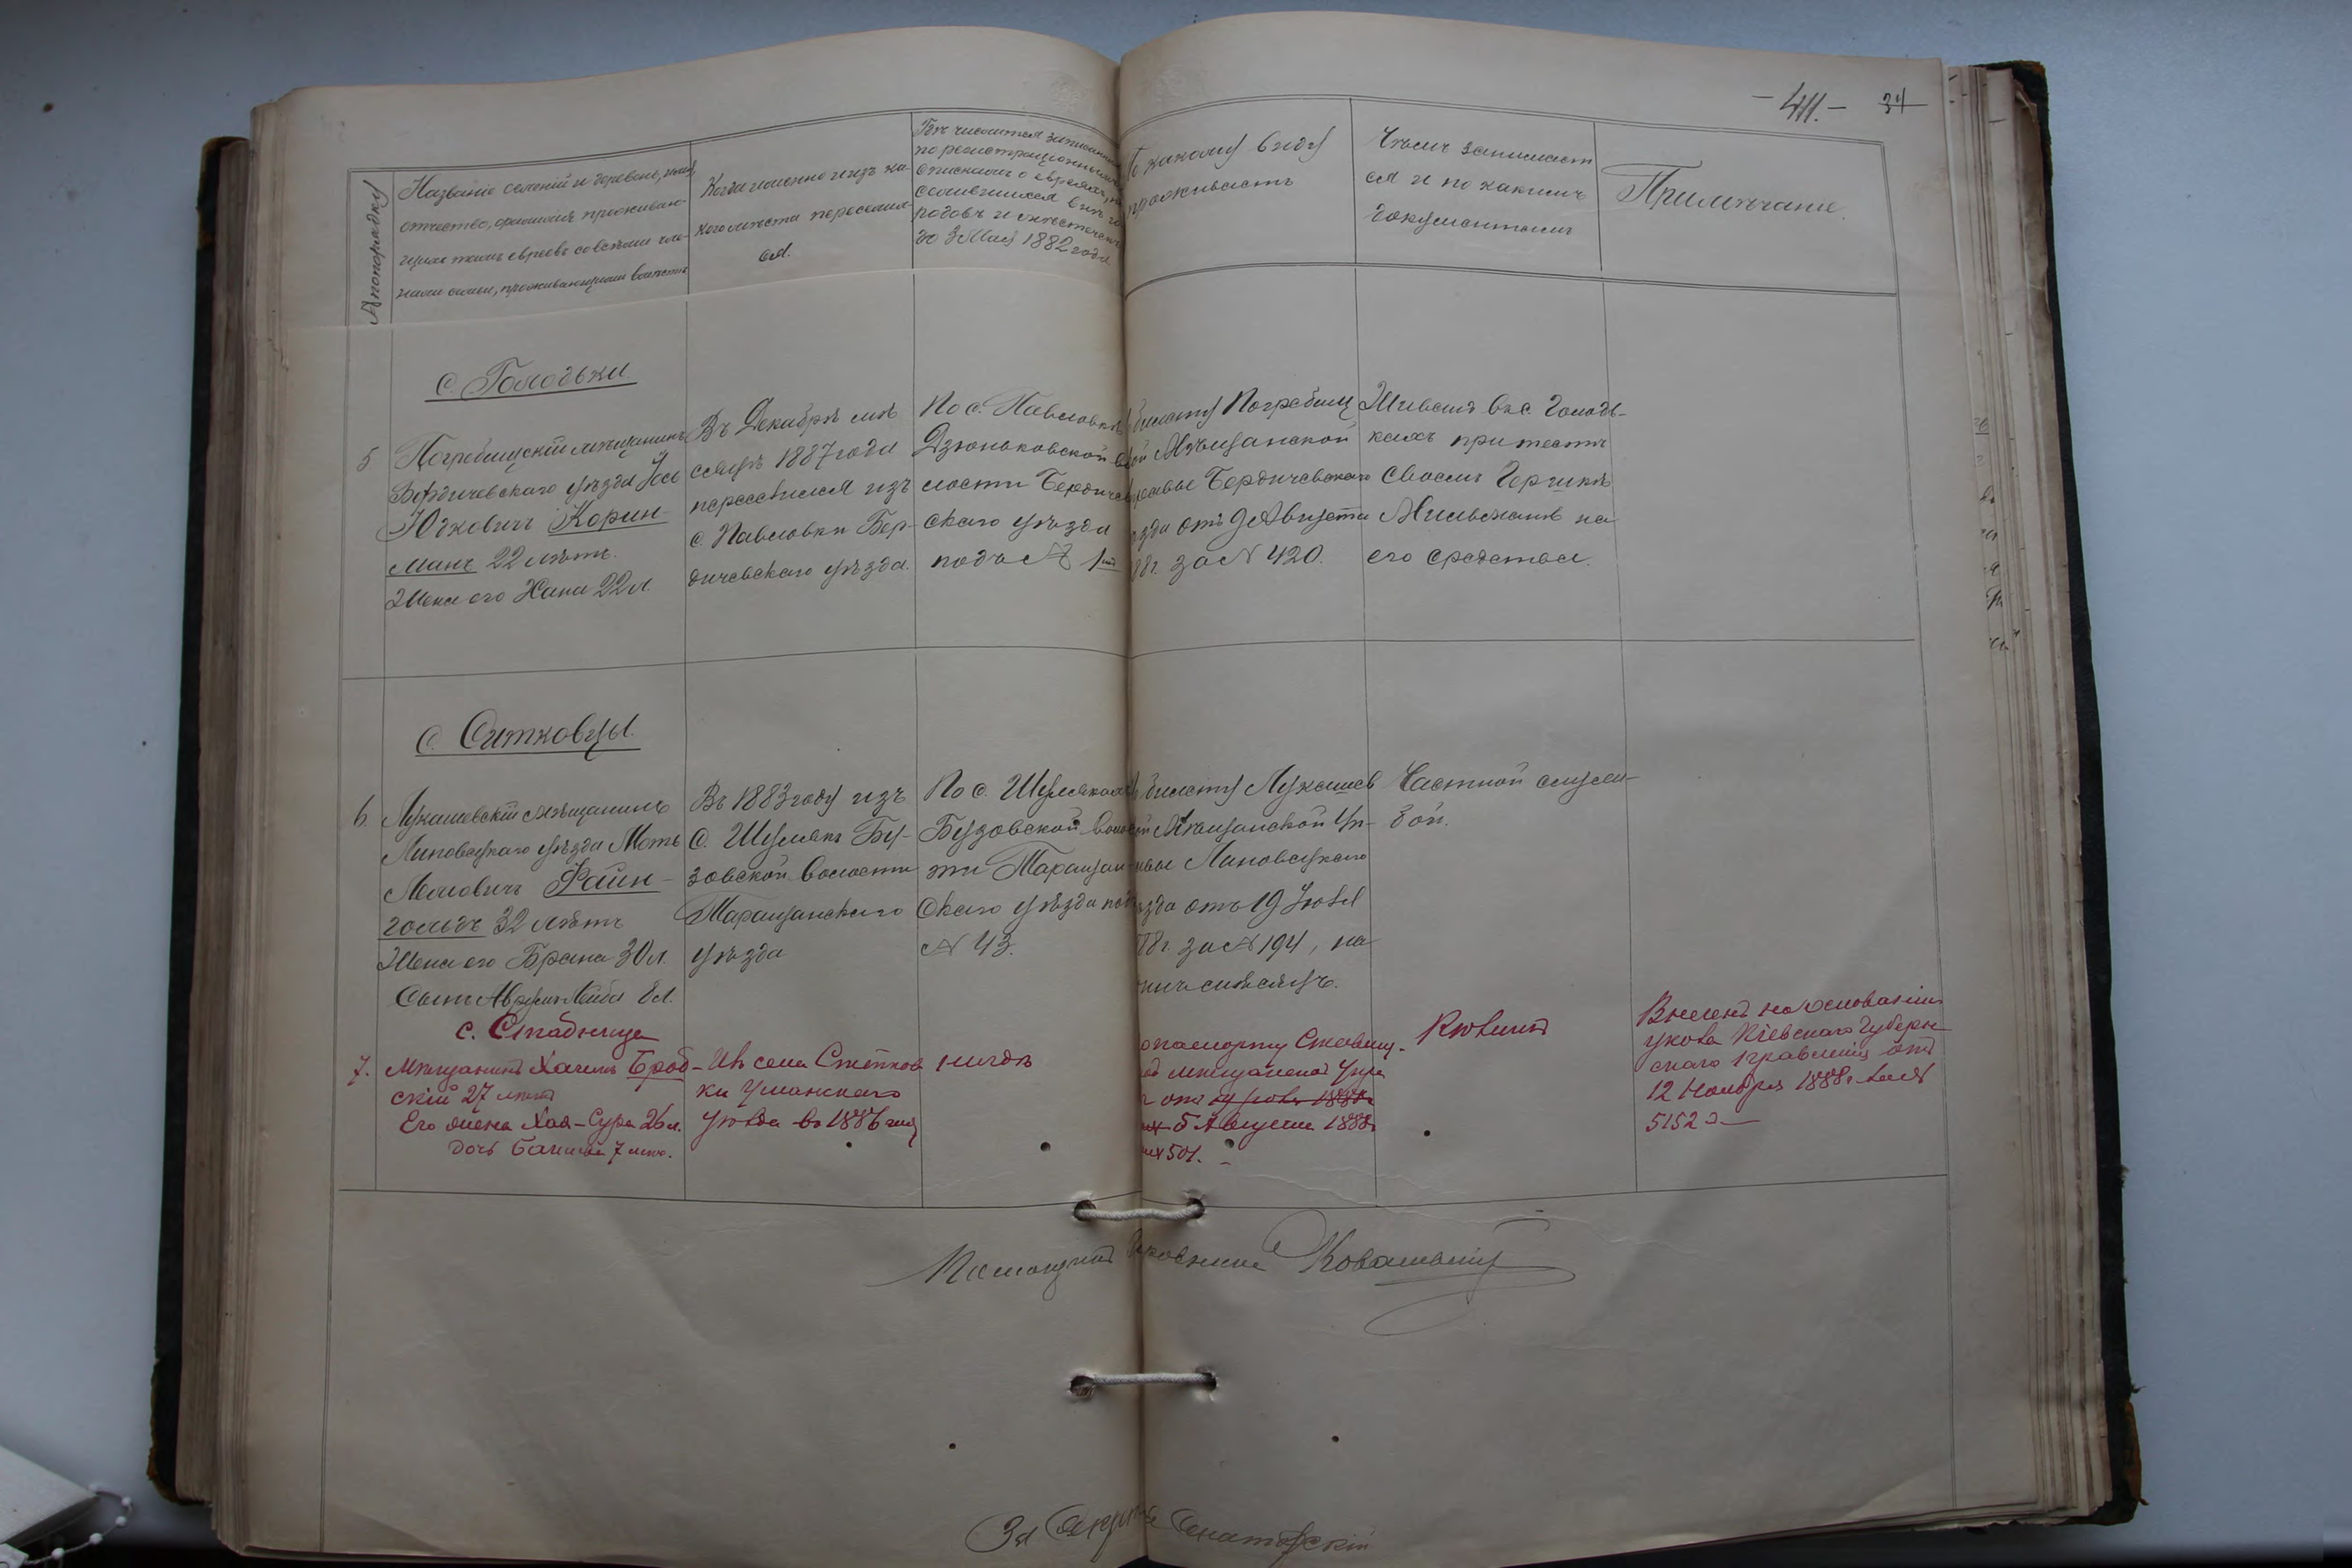 -411.- 34
№ по порядку
Названіе селеній и деревень, имя,
отчество, фамилія проживаю-
щихъ тамъ евреевъ со всѣми чле-
нами семьи, проживающими вмѣстѣ
Когда именно и изъ ка-
кого мѣста переселил-
ся.
Гдѣ числится записаннымъ
по регистраціоннымъ
спискамъ о евреяхъ, по
селившихся внѣ го-
родовъ и мѣстечекъ
до 3 Мая 1882 года
По какому виду
проживаетъ
Чѣмъ занимает
ся и по какимъ
документамъ
Примѣчаніе.
С. Голодьки
5
Погребищскій мѣщанинъ
Бердичевскаго уѣзда Іось
Юшковичъ Корин-
манъ 22 лѣтъ.
Жена его Хана 22 л.
Въ Декабрѣ мѣ
сяцѣ 1887 года
переселился изъ
с. Павловки Бер-
дичевскаго уѣзда.
По с. Павловкѣ
Дзюньковской во
лости Бердичев
скаго уѣзда
подъ № 1
билету Погребищ
ской Мѣщанской
управы Бердичевскаго
ѣзда отъ 9 Августа
88 г. за № 420.
Живетъ въ с. Голодь-
кахъ при тестѣ
своемъ Гершкѣ
на
его средства.
С. Ситковцы.
6.
Лукашевскій мѣщанинъ
Липовецкаго уѣзда Моть
Лейбовичъ Файн-
гольдъ 32 лѣтъ
Жена его Брана 30 л.
Сынъ Аврумъ Лейба 8 л.
Въ 1883 году изъ
С. Шуляки Бу-
зовской волости
Таращанскаго
уѣзда
По с. Шулякамъ
Бузовской волос
ти Таращан
скаго уѣзда подъ
№ 43.
билету Лукашев
ской Мѣщанской Уп-
равы Липовецкаго
ѣзда отъ 19 Іюля
88 г. за № 194, на
мѣсяцъ.
Частной служ-
бой.
с. Стадница
7.
Мѣщанинъ Хаимъ Брод-
скій 27 лѣтъ
Его жена Хая-Сура 26 л.
дочь 7 лѣт.
Изъ села Степков
ки Уманскаго
Уѣзда въ 1886 году
нигдѣ
паспорту Ставищ-
ой мѣщанской Упра
отъ 19 Іюля 1888 г
5 Августа 1888 г
№ 501.
Внесенъ на основаніи
указа Кіевскаго Губерн
скаго правленія отъ
12 Ноября 1888 г. за №
5152
Помощникъ Исправника Ковальскій
За